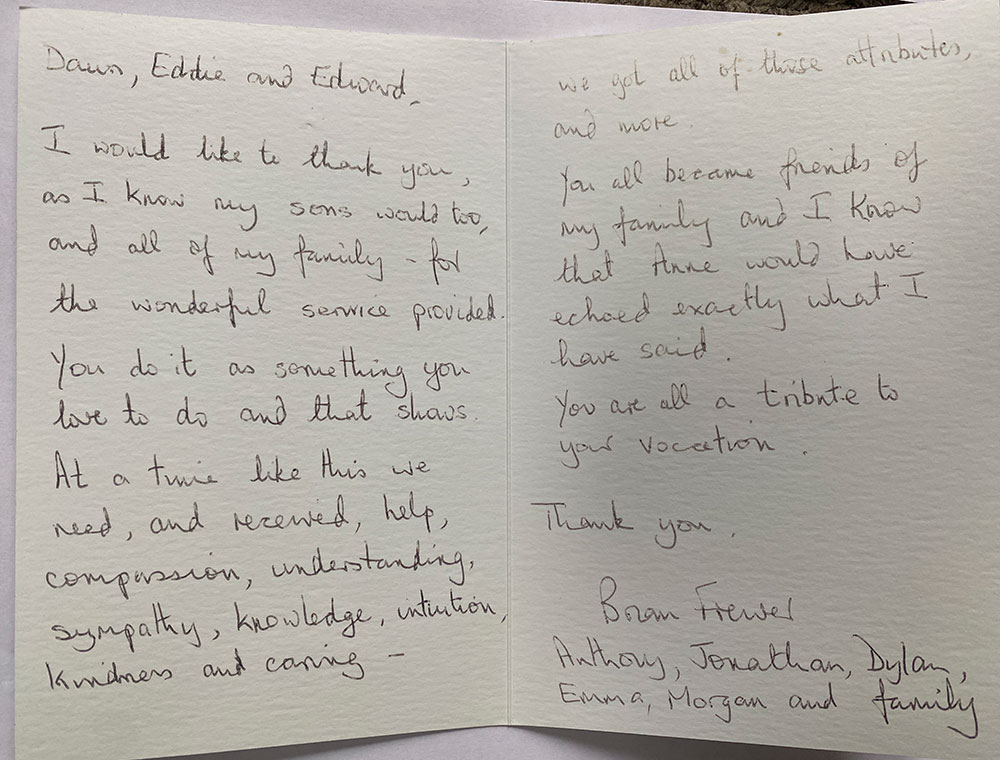 Dawn, Eddie and Edward,
I would like to thank you,
as I know my sons would too,
and all of my family - for
the wonderful service provided.
You do it as something you
love to do and that shows.
At a time like this we
need, and received, help,
compassion, understanding,
sympathy, knowledge, intuition,
kindness and caring -
we got all of those attributes,
and more.
You all became friends of
my family and I know
that Anne would have
echoed exactly what I
have said.
You are all a tribute to
your vocation.
Thank you.
Brian Frewer
Anthony, Jonathan, Dylan,
Emma, Morgan and family